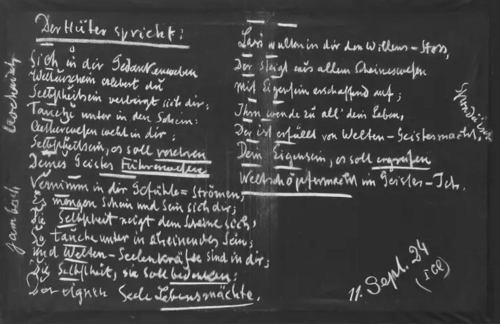 Der Hüter spricht:
Sieh in dir Gedankenweben
Weltenschein erlebest du
Selbstheitsein verbirgt sich dir;
Tauche unter in den Schein:
Aetherwesen weht in dir;
Selbstheitsein, es soll verehren
Deines Geistes Führerwesen
Vernimm in dir Gefühle-Strömen,
Es mengen Schein und Sein sich dir;
Die Selbstheit neigt dem Scheine sich,
So tauche unter in scheinendes Sein;
und Welten-Seelenkräfte sind in dir;
Die Selbstheit, sie soll bedenken:
Der eignen Seele Lebensmächte.
Lass walten in dir den Willens-Stoss,
Der steigt aus allem Scheineswesen
Mit Eigensein erschaffend auf;
Ihm wende zu all' dein Leben,
Der ist erfüllt von Welten-Geistesmacht;
Dein Eigensein, es soll ergreifen
Weltschöpfermacht im Geistes-Ich.
trochäisch
jambisch
spondäisch
11. Sept. 24